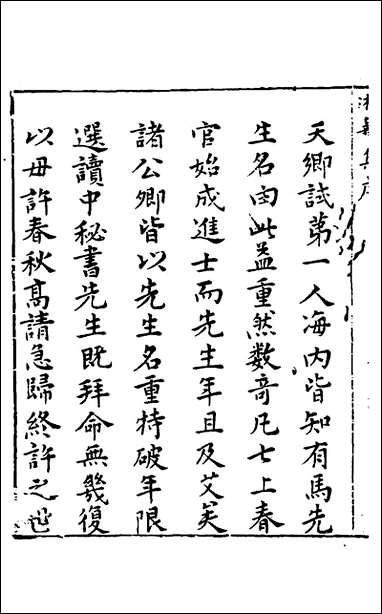 天卿試第一人海内皆知有馬先
生名由此益重然數竒凡七上春
官始成進士而先生年且及艾矣
諸公卿皆以先生名重特破年限
選讀中秘書先生既拜命無幾復
以母許春秋髙請急歸終許之世